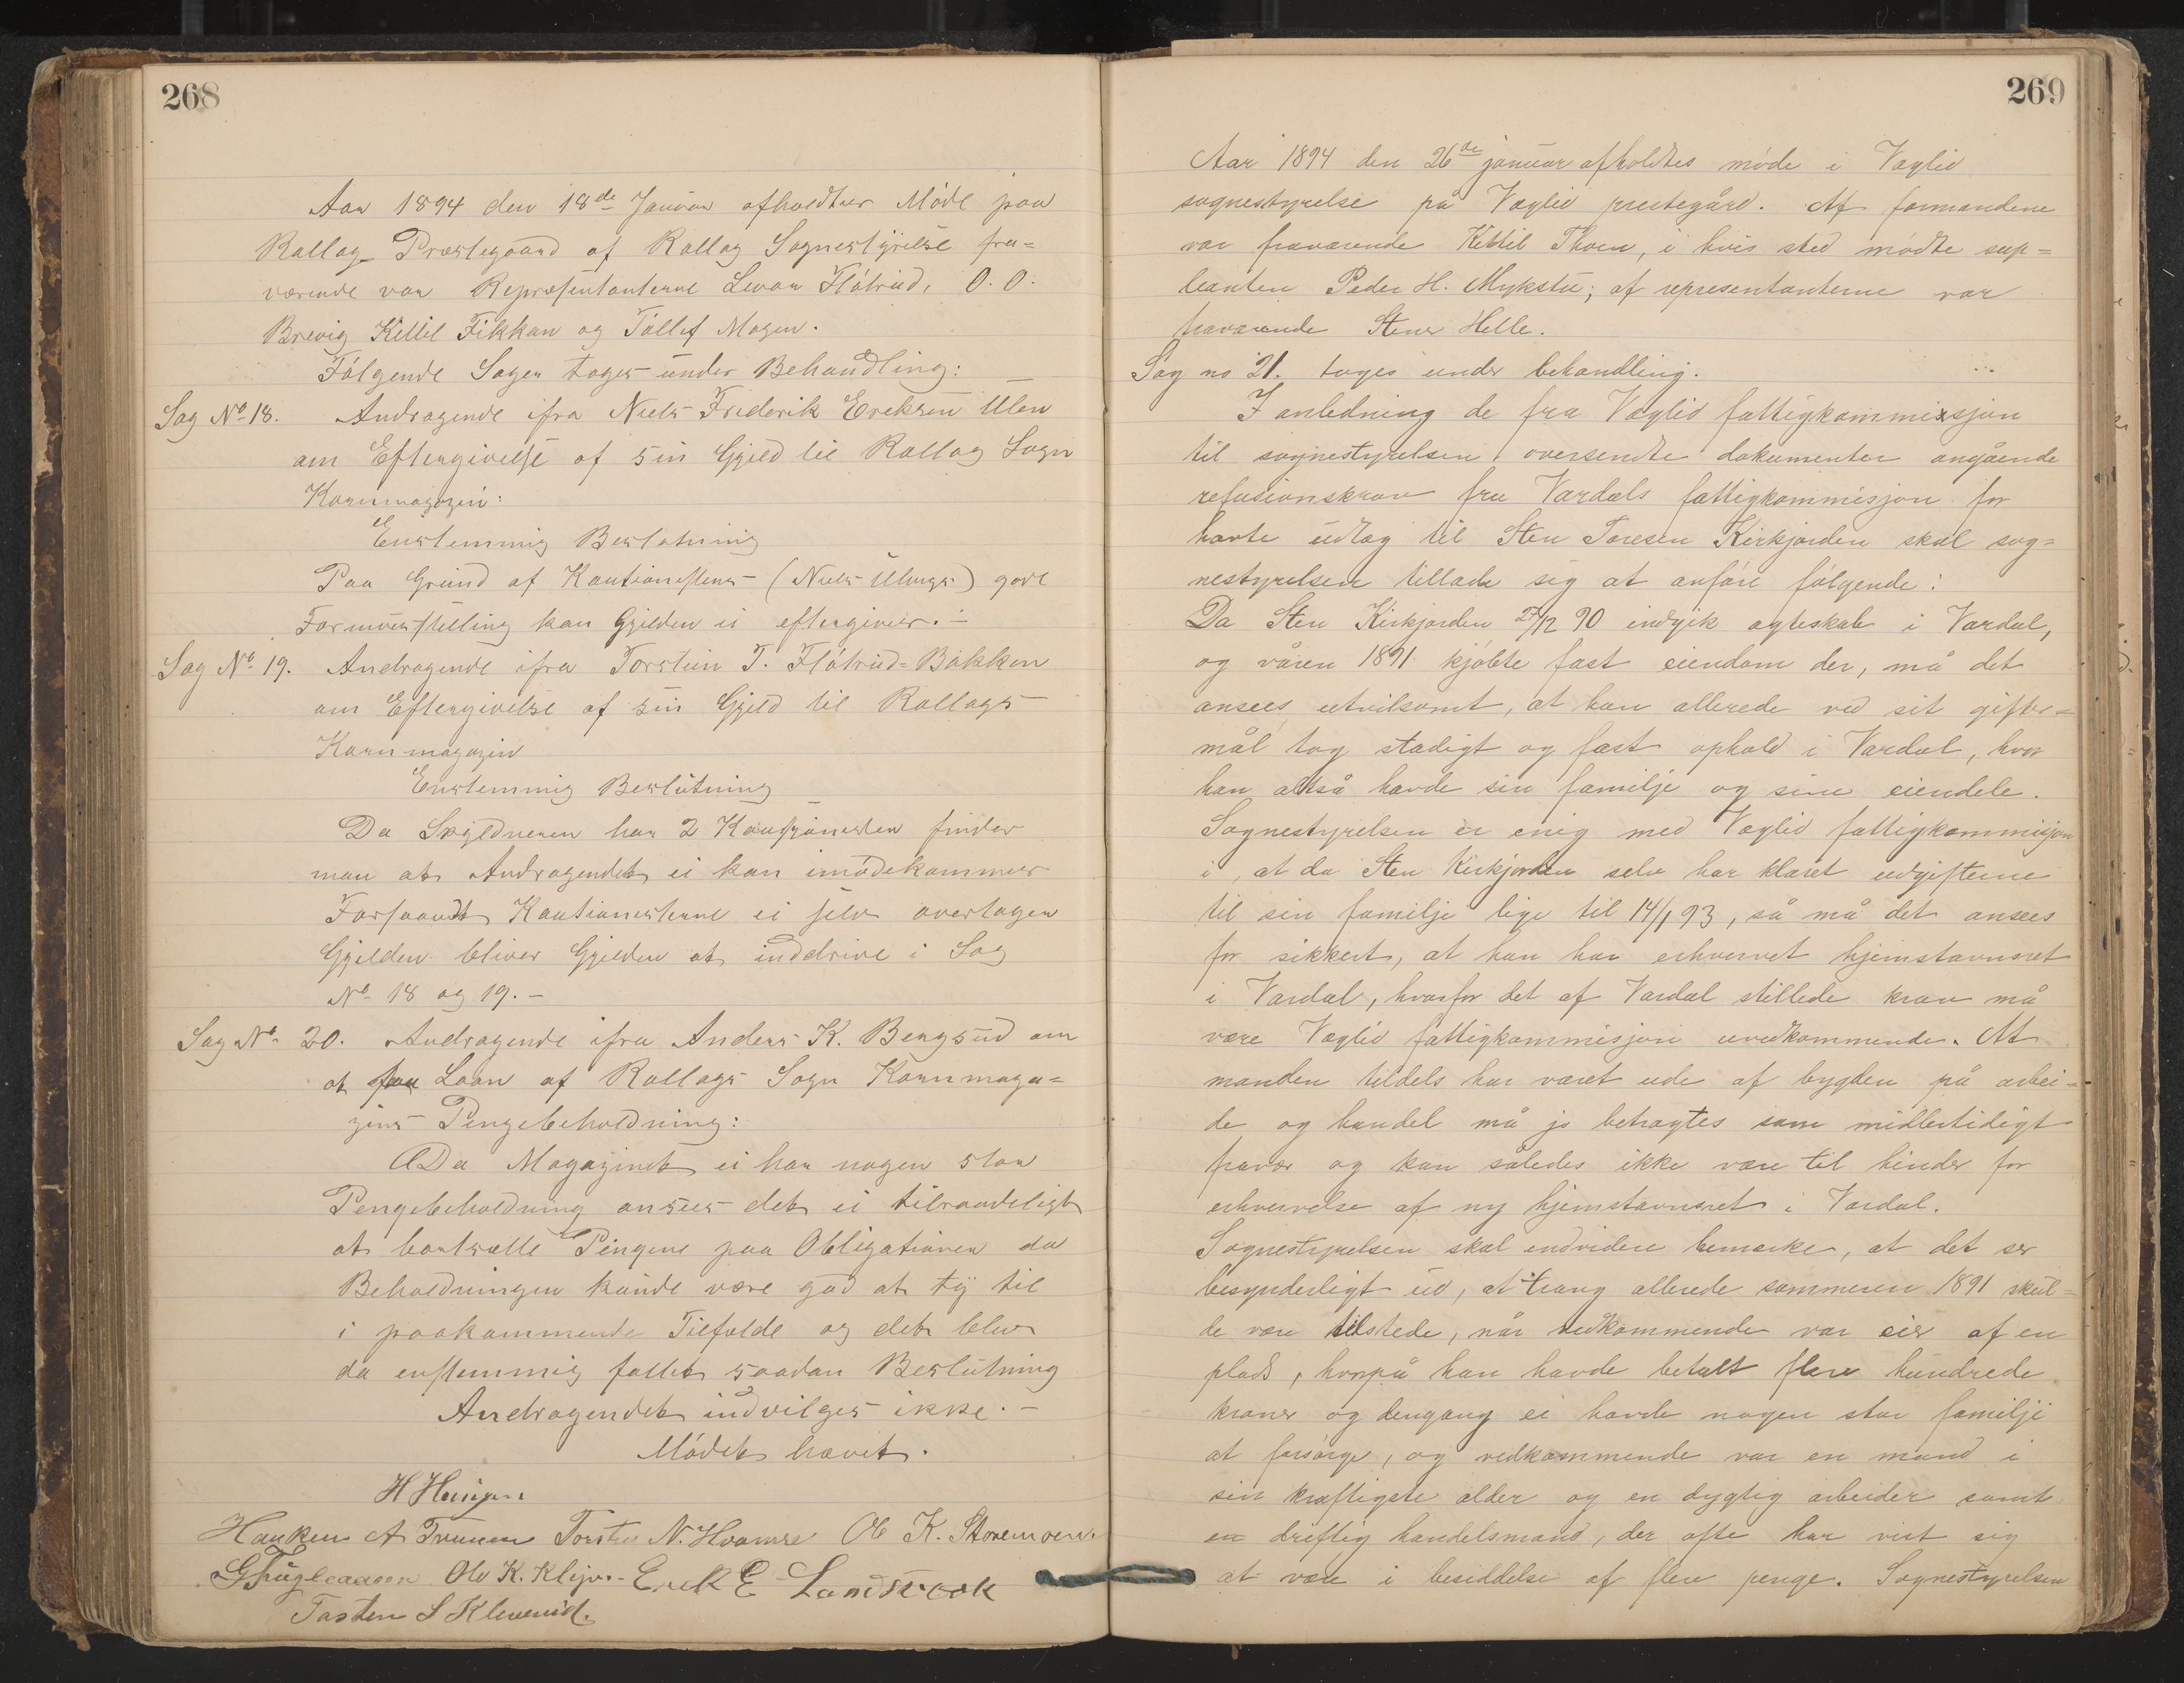 268
Aar 1894 den 18de Januar afholdtes Möde paa
Rollag Præstegaard af Rollag Sognestyrelse fra=
værende var Repræsentanterne Levor Flötrud, O. O.
Brevig Kittil Fikkan og Tollef Mogen.
Fölgende Sager toges under Behandling:
Sag No 18. Andragende ifra Niels Friderik Eriksen Ulen
om Eftergivelse af sin Gjeld til Rollag Sogn
Kornmagazin:
Enstemmig Beslutning
Paa Grund af Kautionistens (Niels Ulengs) gode
Formuesstilling kan Gjelden ei eftergives. -
Sag No 19. Andragende ifra Torstein T. Flötrud=Bakken
om Eftergivelse af sin Gjeld til Rollags
Kornmagazin
Enstemmig Beslutning
Da Skyldneren har 2 Kautjonister finder
man at Andragendet ei kan imödekommes
Forsaavdt Kautionisterne ei selv overtager
Gjelden bliver Gjelden at inddrive i Sag
No 18 og 19. -
Sag No 20. Andragende ifra Anders K. Bergsud om
at faa Laan af Rollags Sogn Kornmaga=
zins Pengebeholdning:
Da Magazinet ei har nogen stor
Pengebeholdning ansees det ei tilraadeligt
at bortsætte Pengene paa Obligationer da
Beholdningen kunde være god at ty til
i paakommende Tilfelde og det blev
da enstemmig fattet saadan Beslutning
Andragendet indvilges ikke. -
Mödet hævet.
H Heirjen
Haaken A Traaen Torsten N. Hvamre Ole K. Storemoen.
Ole K. Erik E Landsverk
Tosten S Kleverud.
269
Aar 1894 den 26de januar afholdtes möde i Væglid
sognestyrelse på Væglid prestegård. Af formændene
var fraværende Kittil Thoen, i hvis sted mødte sup=
leanten Peder H. Mykstu; af representanterne var
fraværende Stener Helle.
Sag no 21. toges under behandling.
I anledning de fra Væglid fattigkommissjon
til sognestyrelsen oversendte dokumenter angående
refusionskrav fra Vardals fattigkommisjon for
havte udlæg til Sten Toresen Kirkjorden skal sog=
nestyrelsen tillade sig at anföre fölgende:
Da Sten Kirkjorden 27/12 90 indgik ægteskab i Vardal,
og våren 1891 kjöbte fast eiendom der, må det
ansees utvilsomt, at han allerede ved sit gifter=
mål tog stadigt og fast ophold i Vardal, hvor
han altså havde sin familje og sine eiendele.
Sognestyrelsen er enig med Væglid fattigkommisjon
i, at da Sten Kirkjorden selv har klaret udgifterne
til sin familje lige til 14/1 93, så må det ansees
for sikkert, at han har erhvervet hjemstavnsret
i Vardal, hvorfor det af Vardal stillede krav må
være Væglid fattigkommisjon uvedkommende. At
manden tildels har været ude af bygden på arbei=
de og handel må jo betragtes som midlertidigt
fravær og kan således ikke være til hinder for
erhvervelse af ny hjemstavnsret i Vardal.
Sognestyrelsen skal endvidere bemærke, at det ser
besynderligt ud, at trang allerede sommeren 1891 skul=
de være tilstede, når vedkommende var eier af en
plads, hvorpå han havde betalt flere hundrede
kroner og dengang ei havde nogen stor familje
at forsörge, og vedkommende var en mand i
sin kraftigste alder og en dygtig arbeider samt
en driftig handelsmand, der ofte har vist sig
at være i besiddelse af flere penge. Sognestyrelsen